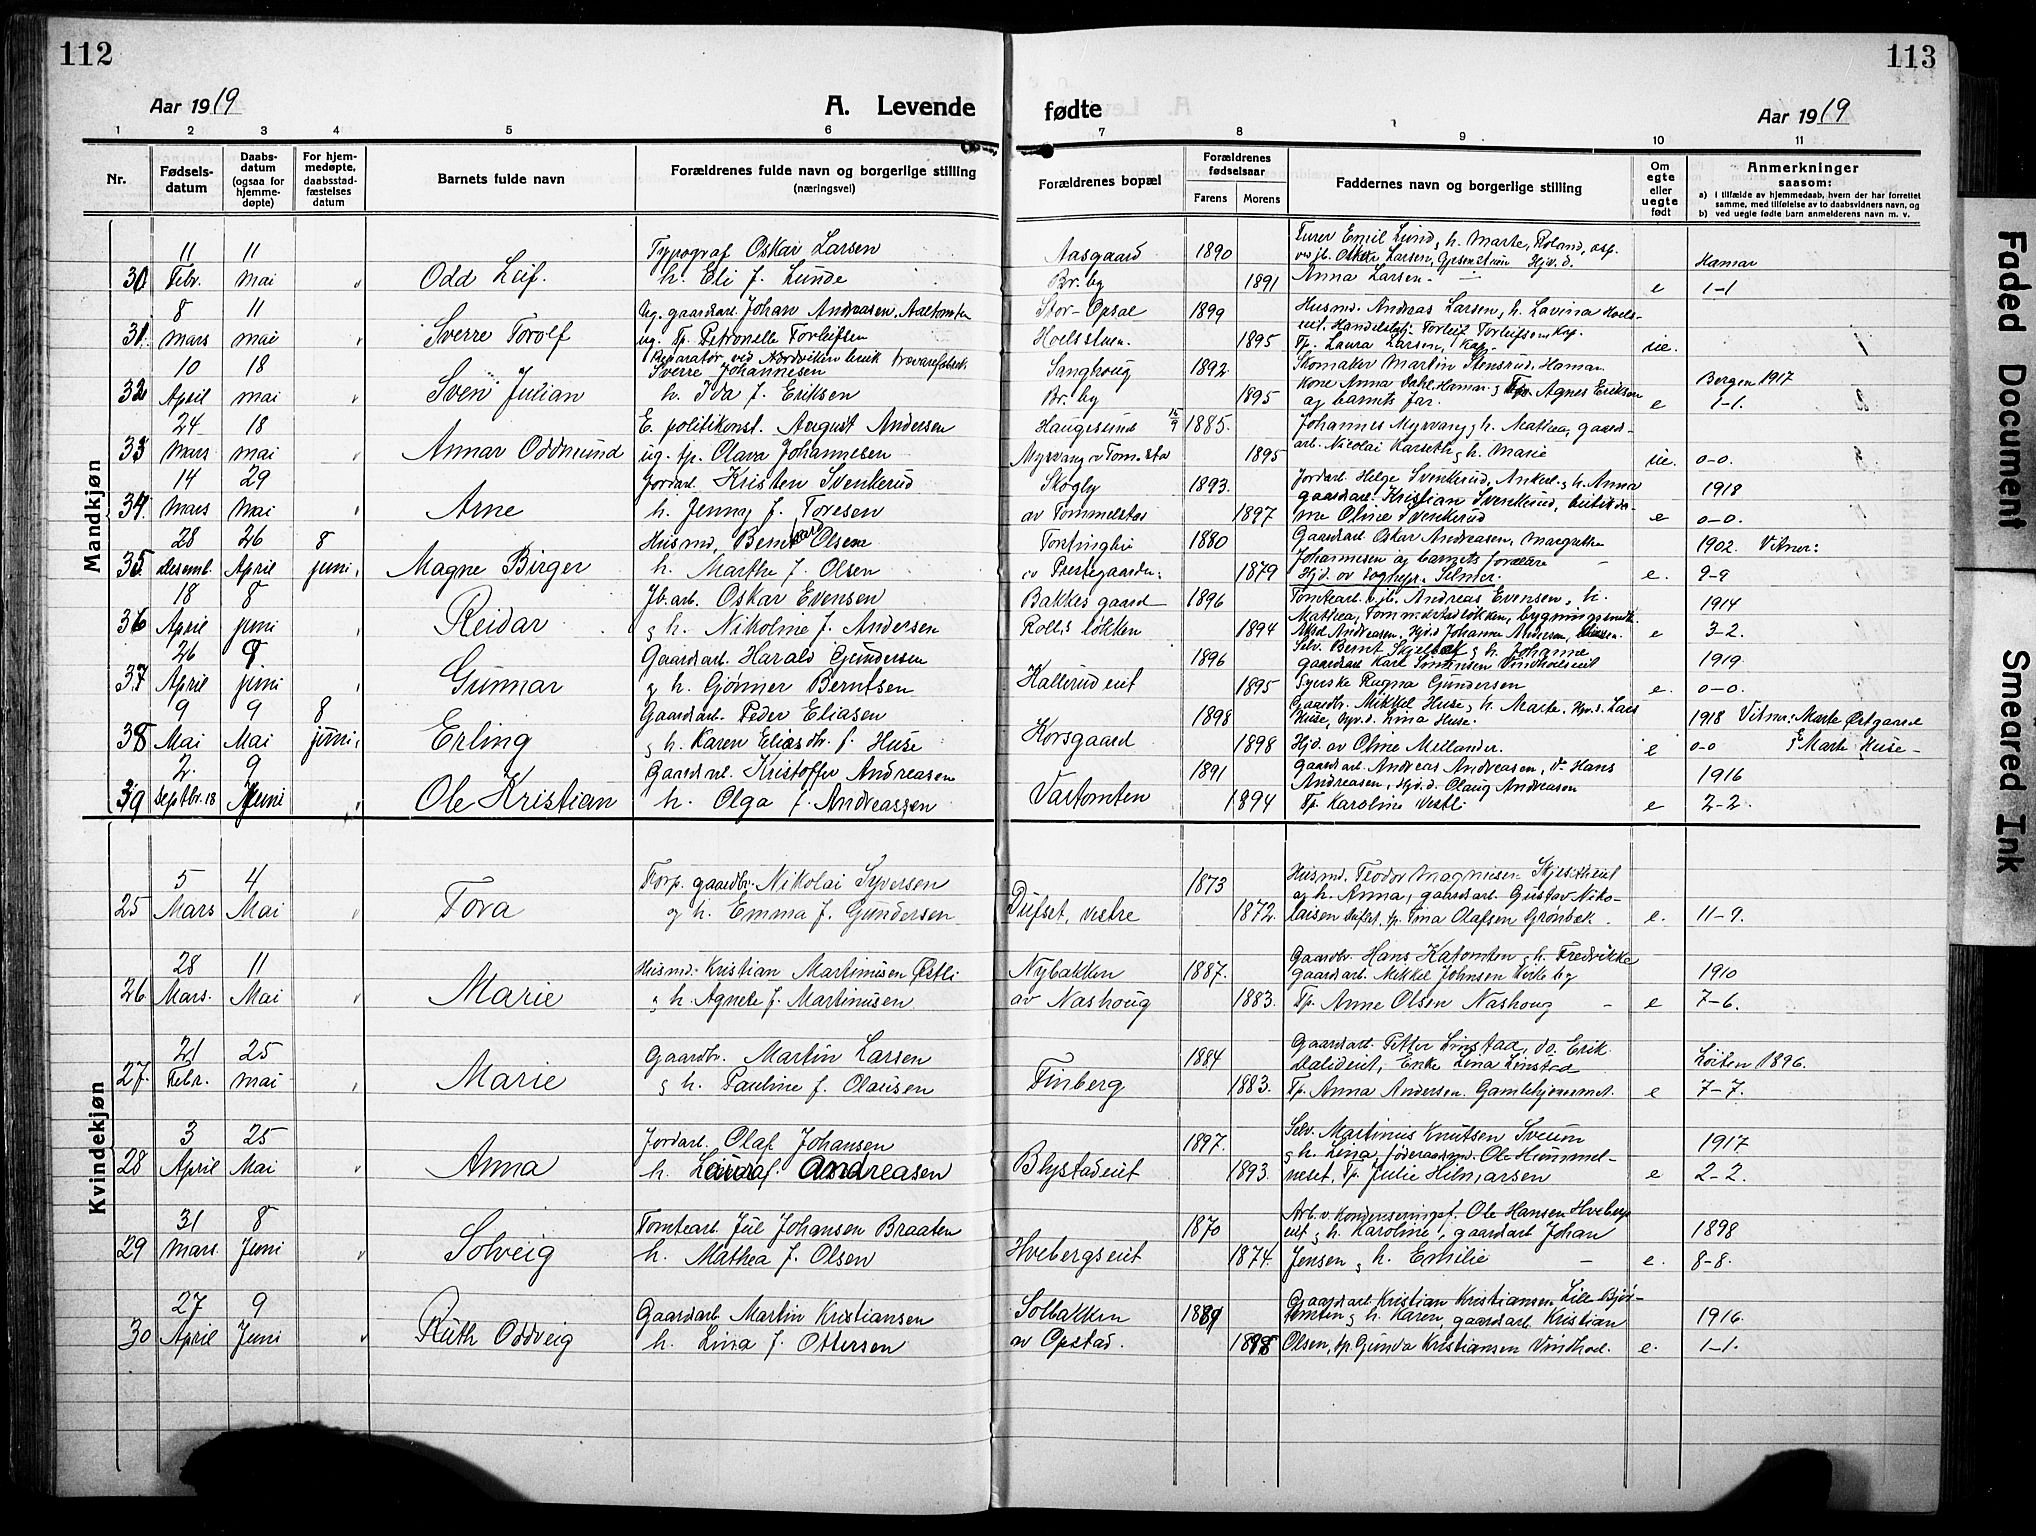 112
Aar 1919
A. Levende
1 2 3 4 5 6
Nr.
Fødsels-
datum
Daabs-
datum
(ogsaa for
hjemme-
døpte)
For hjem-
medøpte,
daabsstad-
fæstelses
datum
Barnets fulde navn
Forældrenes fulde navn og borgerlige stilling
(næringsvei)
Mandkjøn
11 11 Typograf Oskar Larsen
30 Febr. mai " Odd Leif. h. Eli f. Lunde
8 11 Ug. gaardsarb. Johan Andreasen,
31. mars mai " Sverre Torolf ug. Tp. Petronelle Torleifsen
10 18 Sverre Johannesen
32 April mai " Svein Julian h. Ida f. Eriksen
24 18 E. politikonst. August Andersen
33 Mars mai " Annar Oddmund ug. tp. Olava Johannesen
14 29 Jordarb. Kristen Svenkerud
34. Mars Mai " Arne h. Jenny f. Toresen
28 26 8 Husmd. Bernt Olsen
35. desemb. April juni Magne Birger h. Marthe f. Olsen
18 8 Jb.arb. Oskar Evensen
36 April juni " Reidar & h. Nikoline f. Andersen
26 9 Gaardsarb. Harald Gundersen
37 April juni " Gunnar & h. Gjønner Berntsen
9 9 8 Gaardsarb. Peder Eliasen
38 Mai Mai juni Erling & h. Karen Eliasdtr. f. Huse
2. 9 Gaardsarb. Kristoffer Andreasen
39 Septbr. 18 Juni " Ole Kristian h. Olga f. Andreassen
Kvindekjøn
5 4 Forp. gaardbr. Nikolai Syversen
25 Mars Mai " Tora og h. Emma f. Gundersen
28 11 Husmd. Kristian Martinusen Østli
26 Mars. Mai " Marie & h. Agnete f. Martinusen
21 25 Gaardbr. Martin Larsen
27. Febr. mai " Marie & h. Pauline f. Olausen
3 25 Jordarb. Olaf Johansen
28 April Mai " Anna h. Laura f. Andreasen
31 8 Tomtearb. Jul Johansen Braaten
29 Mars Juni " Solveig h. Mathea f. Olsen
27 9 Gaardsarb. Martin Kristiansen
30 April Juni " Ruth Oddveig h. Lina f. Ottersen
113
fødte
Aar 1919
7 8 9 10 11
Forældrenes bopæl
Forældrenes
fødselsaar
Farens Morens
Faddernes navn og borgerlige stilling
Om
egte
eller
uegte
født
Anmerkninger
saasom:
a) i tilfælde av hjemmedaab, hvem der har forrettet
samme, med tilføielse av to daabsvidners navn, og
b) ved uegte fødte barn anmelderens navn m. v.
Aasgaard 1890 Furer Emil Lund, h. Marte, Roland, asp.
Hamar
Br. by 1891 Anna Larsen e 1-1
Stor-Opsal 1899 Husmd. Andreas Larsen, h. Lavina Hoels-
eit. Handelsbtj. Torleif Torleifsen Kap.
Hoelsstuen. 1895 Tp. Laura Larsen, Kap. ue.
Sanghoug 1892 Skomaker Martin Stensrud, Hamar
Kone Anna Dahl Hamar & Agnes Eriksen Bergen 1917
Br. by 1895 og barnets far. e 1-1.
Haugesund 15/9 1885. Johannes Myrvang, h. Mathea, gaards-
Myrvang v Tom.stad 1895 arb. Nicolai Karseth & h. Marie ue. 0-0.
Skogby 1893. Jordarb. Helge Svenkerud, Ankerl. & h. Anna 1918
gaardsarb. Kristian Svenkerud, butikda-
av Tommelstad 1897 me Oline Svenkerud e 0-0.
1880 Gaardsarb Oskar Andreasen, Margrethe 1902. Vitner:
Johannesen og barnets forældre
v Prestegaarden 1879 Hjd. av sognepr. Selmer. e. 9-9
Bakkes gaard 1896 Tomtearb. v. jb. Andreas Evensen, h. 1914
Rolls løkken 1894 Andreasen, Hjd. Johanne Andersen, e 3-2.
1896 Selv. Bernt Skjelset & h. Johanne 1919.
gaardsarb Karl Sørensen Vindholseit
Kallerudeit 1895 Syerske Ragna Gundersen e. 0-0.
1898 Gaardbr. Mikkel Huse, h. Marte, Hjv. s. Lars 1918 Vitner: Marte Østgaard
Huse, Hjv. d. Lina Huse.
Korsgaard 1898 Hjd. av Oline Mellander. e 0-0 & Marte Huse -
1891 gaardsarb. Andreas Andreasen, v. Hans 1916
Andreasen, Hjd. d. Olaug Andreasen
Vastomten 1894 Tp. Karoline Vestli e 2-2.
1873 Husmd. Teodor Magnusen Skjesetheit
og h. Anna, gaardsarb. Gustav Niko-
Dufset, vestre 1872. laisen Dufset, tp. Tina Olafsen Grønbæk e. 11-9.
Nybakken 1887. Gaardbr. Hans Katomten & h. Fredrikke 1910
gaardsarb. Mikkel Johnsen Kirkeby
av Nashoug 1883. Tp. Anne Olsen Nashoug e 7-6.
1884 Gaardsarb. Petter Linstad, do. Erik Løiten 1896.
Dalideiet, Enke Lina Linstad
Finberg 1883. Tp. Anna Andersen. Gamlehjemmet. e 7-7.
1897. Selv. Martinus Knutsen Sveum 1917
& h. Lina, føderaadsmd. Ole Hummel-
Blystadeiet 1893. neset, Tp. Julie Hilmarsen e 2-2.
1870 Arb. v. Kondenseringsf. Ole Hansen Hvebergs
eit & h. Karoline, gaardsarb Johan 1898
Hvebergseiet 1874. Jensen & h. Emilie e. 8-8.
Solbakken Gaardsarb. Kristian Kristiansen Lille Bjør-
tomten & h. Karen, gaardsarb. Kristian 1916
av Opstad. Olsen, tp. Gunda Kristiansen Vindhol. e. 1-1.
Faded Document
Smeared Ink